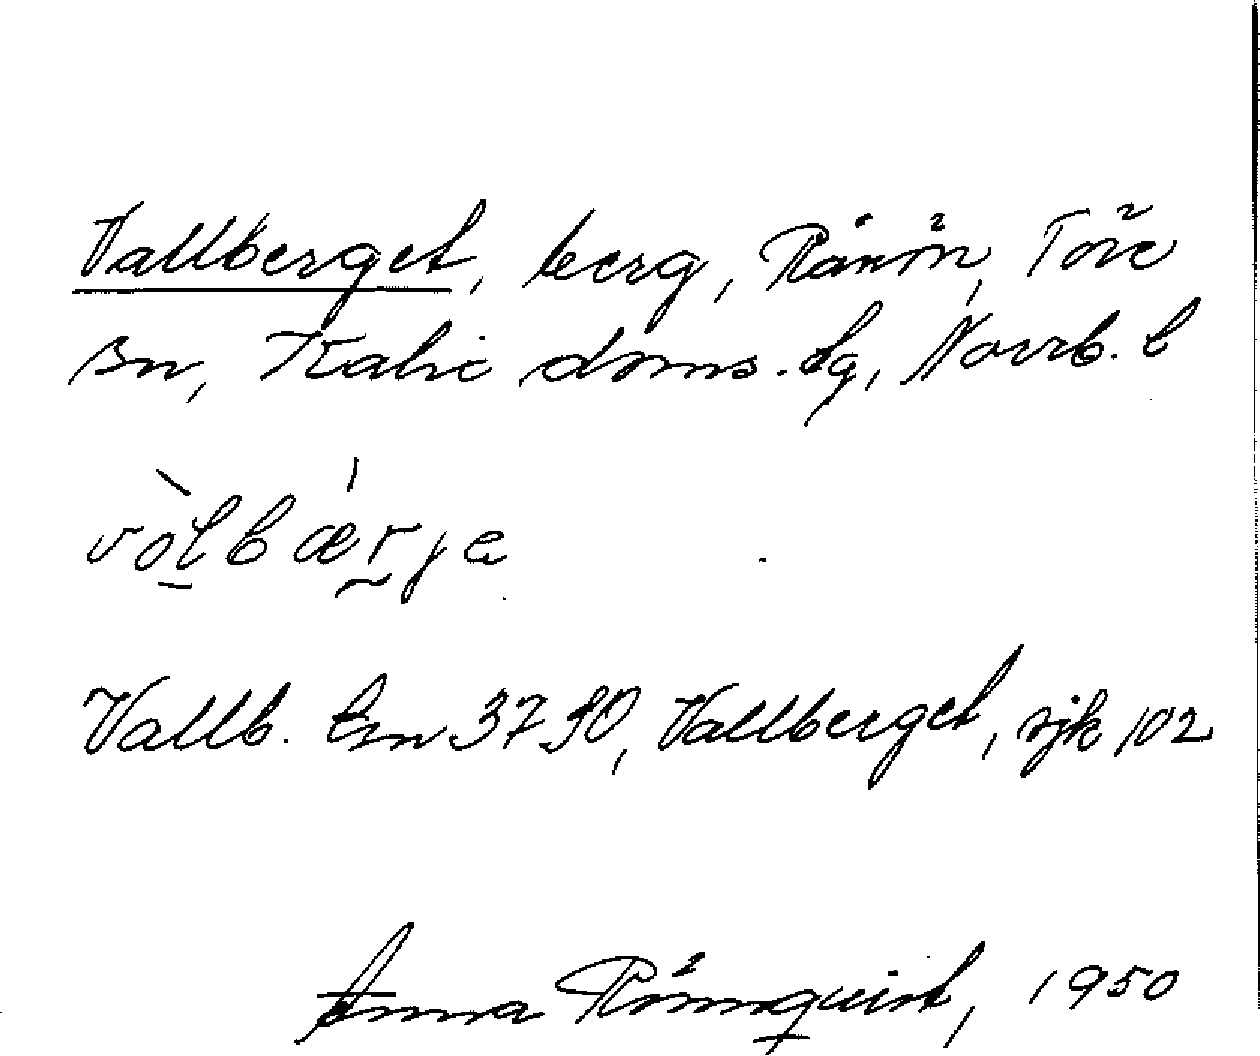 Vallberget, berg, Rånön, Töre
sn, Kalix doms.sg, Norrb. l
vòlbærjə
Vallb. tm 3790, Vallberget, sjk 102
Anna Rönnquist, 1950